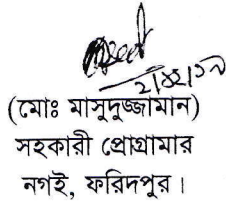 (মোঃ মাসুদুজ্জামান)
সহকারী প্রোগ্রামার
নগই, ফরিদপুর।